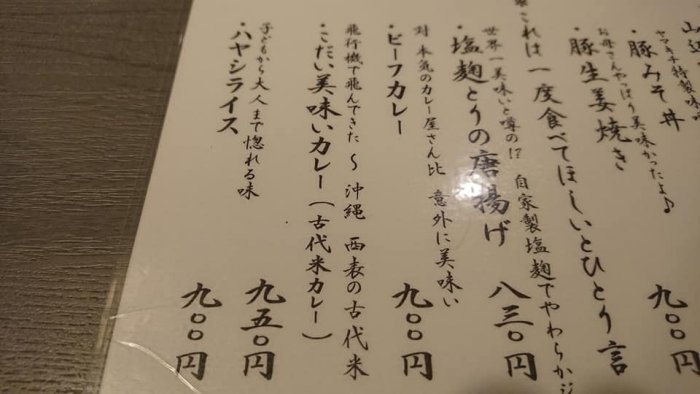 山辺
ヤマキチ特製味
・豚みそ丼
お母さんやっぱり美味かったよ♪
・豚生姜焼き 九〇〇円
※これは一度食べてほしいとひとり言
世界一美味いと噂の!? 自家製塩麹でやわらかジ
・塩麹とりの唐揚げ 八三〇円
対 本気のカレー屋さん比 意外に美味い
・ビーフカレー 九〇〇円
飛行機で飛んできた〜 沖縄 西表の古代米
・こだい美味いカレー(古代米カレー) 九五〇円
子どもから大人まで惚れる味
・ハヤシライス 九〇〇円